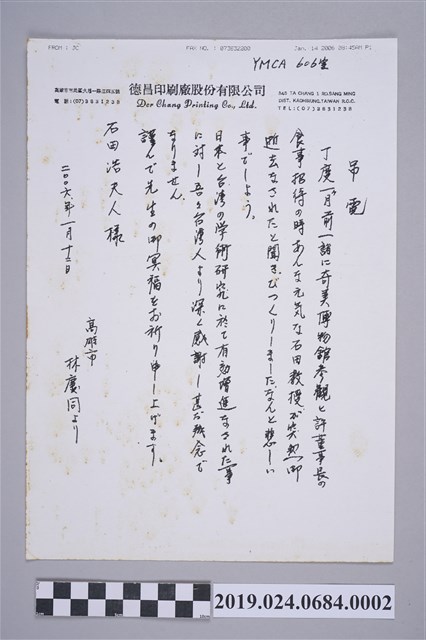 FROM : JC
FAX NO. : 073232300
Jan. 14 2006 08:45AM P1
YMCA 606室
德昌印刷廠股份有限公司
Der Chang Printing Co., Ltd.
DIST. KAOHSIUNG, TAIWAN R.O.C.
弔電
丁度一ヶ月前一諸に奇美博物館参観と許董事長の
食事招待の時あんな元気な石田教授が突然御
逝去なされたと聞きびつくりしましたなんと悲しい
事でしよう。
日本と台湾の学術研究に於て有効増進なされた事
に対し吾々台湾人より深く感謝し甚だ残念で
なりません。
謹んで先生の御冥福をお祈り申し上げます。
石田浩夫人様
二〇〇六年一月十三日
高雄市
林慶同より
2019.024.0684.0002